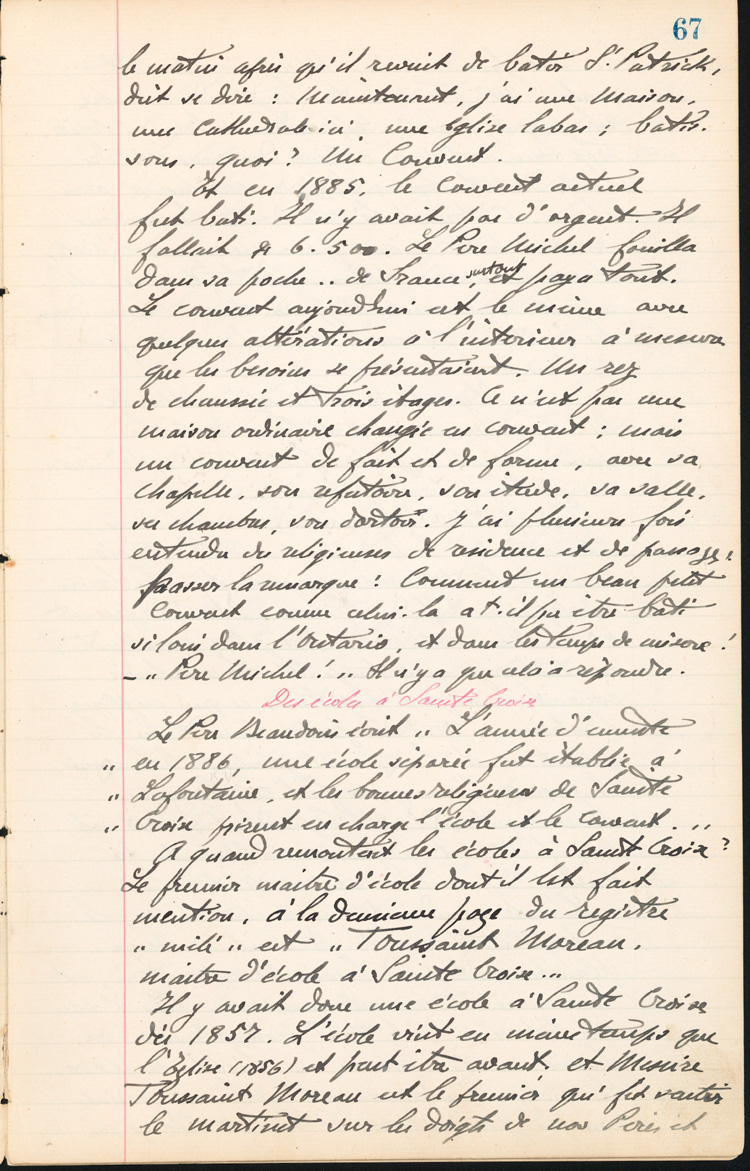 67
le matin après qu'il revint de bâtir St. Patrick,
dut se dire : Maintenant, j'ai une Maison,
une Cathédrale ici, une Eglise labas ; batis-
sons, quoi? Un Couvent.
Et en 1885, le Couvent actuel
fut bati. Il n'y avait pas d'argent. Il
fallait $ 6.500. Le Père Michel fouilla
dans sa poche .. de France surtout, et paya tout.
Le couvent aujourdhui est le même avec
quelques altérations à l'interieur à mesure
que les besoins se présentaient. Un rez
de chaussée et trois étages. Ce n'est pas une
maison ordinaire changée en couvent ; mais
un couvent de fait et de forme, avec sa
Chapelle, son refectoire, son étude, sa salle,
ses chambres, son dortoir. J'ai plusieurs fois
entendu des religieuses de residence et de passage,
passer la remarque : Comment un beau petit
Couvent comme celui-la a t-il pu être bâti
si loin dans l'Ontario, et dans les temps de misère !
- „ Père Michel ! „ Il n'y a que cela a répondre.
Des écoles à Sainte Croix
Le Père Beaudoin écrit „ L'année d'ensuite
„ en 1886, une école séparée fut établie à
„ Lafontaine, et les bonnes religieuses de Sainte
„ Croix prirent en charge l'école et le Couvent . „
A quand remontent les écoles à Sainte Croix ?
Le premier maitre d'école dont il est fait
mention, à la deuxieme page du registre
„ mêlé „ est „ Toussaint Moreau,
maitre d'école à Sainte Croix .. „
Il y avait donc une école à Sainte Croix
dès 1857. L'école vint en même temps que
l'Eglise (1856) et peut être avant, et Messire
Toussaint Moreau est le premier qui fit sentir
le martinet sur les doigts de nos Pères et